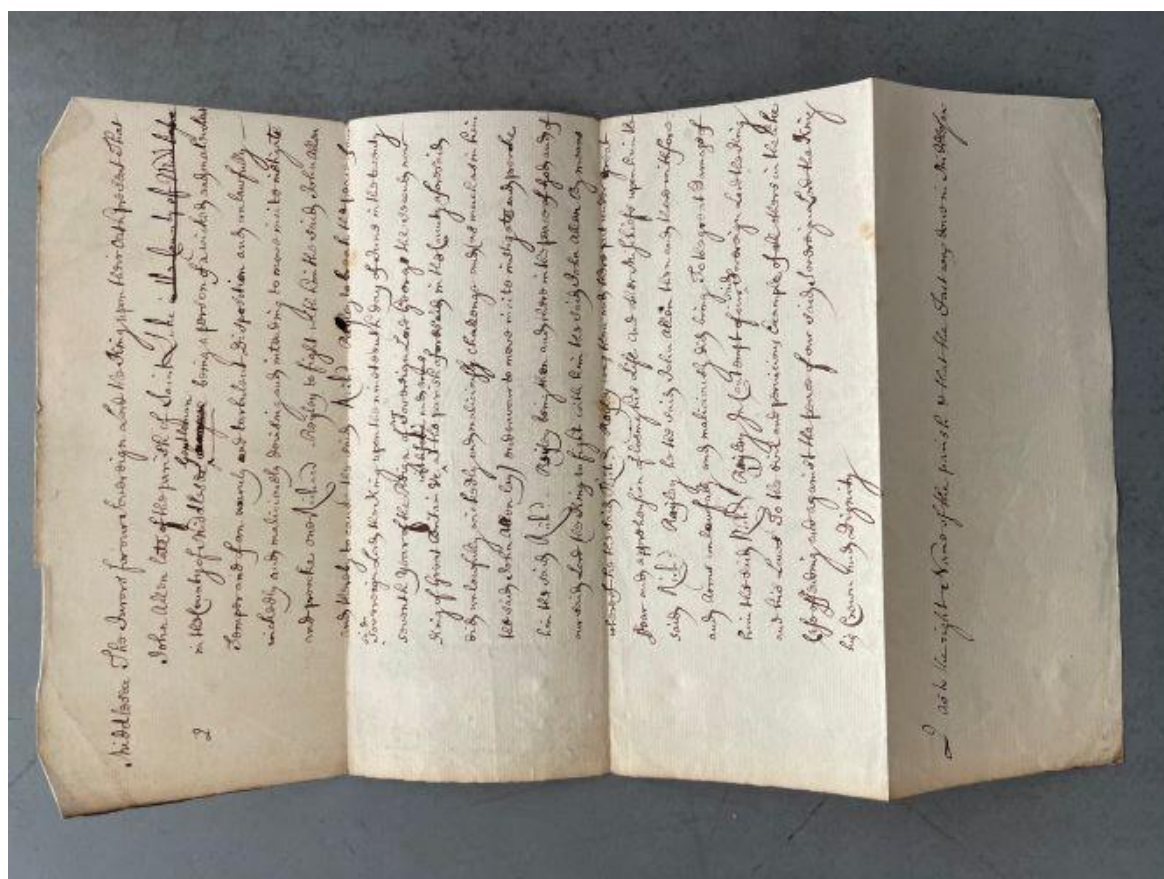 Middlesex The Jurors for our Sovereign Lord the King upon their Oath present That
John Allen late of the parish of Saint Luke in the County of Middlesex
in the County of Middlesex Gentleman being a person of a wicked and malicious
Temper and of an unruly and turbulent Disposition and unlawfully
wickedly and maliciously devising and intending to move incite instigate
and provoke one Richd Bayley to fight with him the said John Allen
and thereby to the said Richd
Sovereign Lord the King upon the day of June in the twenty
seventh Year of the Reign of Sovereign Lord George the second now
King of Great Britain &c at the parish aforesaid in the County aforesaid
did unlawfully wickedly and maliciously challenge and as much as in him
the said John Allen lay endeavour to move incite instigate and provoke
him the said Richd Bayley being then and there in the peace of God and of
our said Lord the King to fight with him the said John Allen By means
whereof he the said Richd Bayley was then and there put under great
Fear and apprehension of losing his Life and other Mischiefs upon him the
said Richd Bayley he the said John Allen then and there with force
and Arms unlawfully and maliciously did bring To the great Damage of
him the said Richd Bayley In Contempt of our said Sovereign Lord the King
and his Laws To the evil and pernicious Example of all others in the like
Case offending and against the peace of our said Sovereign Lord the King
his Crown and Dignity
2
2 as to the right Name of the parish & that the Fact was done in Middlesex